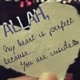 ALLAH,
My heart is perfect
because
You are inside